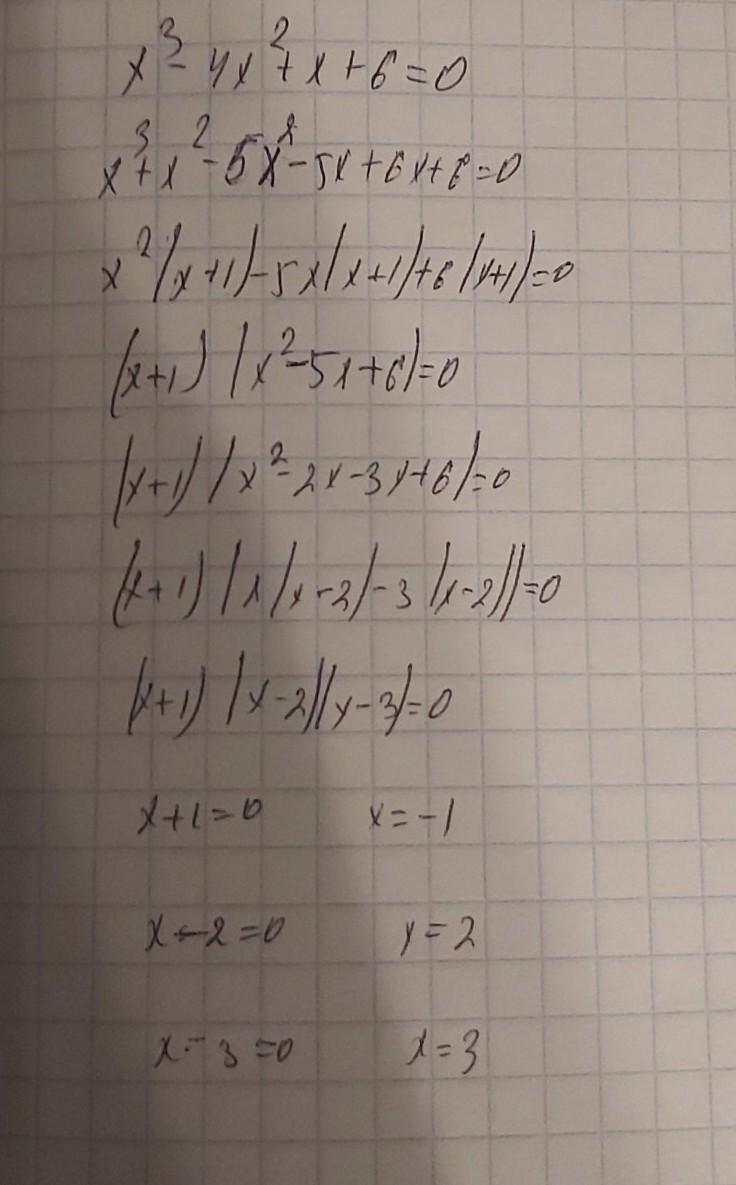 x³ - 4x² + x + 6 = 0
x³ + x² - 5x² - 5x + 6x + 6 = 0
x²(x+1) - 5x(x+1) + 6(x+1) = 0
(x+1)(x² - 5x + 6) = 0
(x+1)(x² - 2x - 3x + 6) = 0
(x+1)(x(x-2) - 3(x-2)) = 0
(x+1)(x-2)(x-3) = 0
x+1=0 x=-1
x-2=0 x=2
x-3=0 x=3